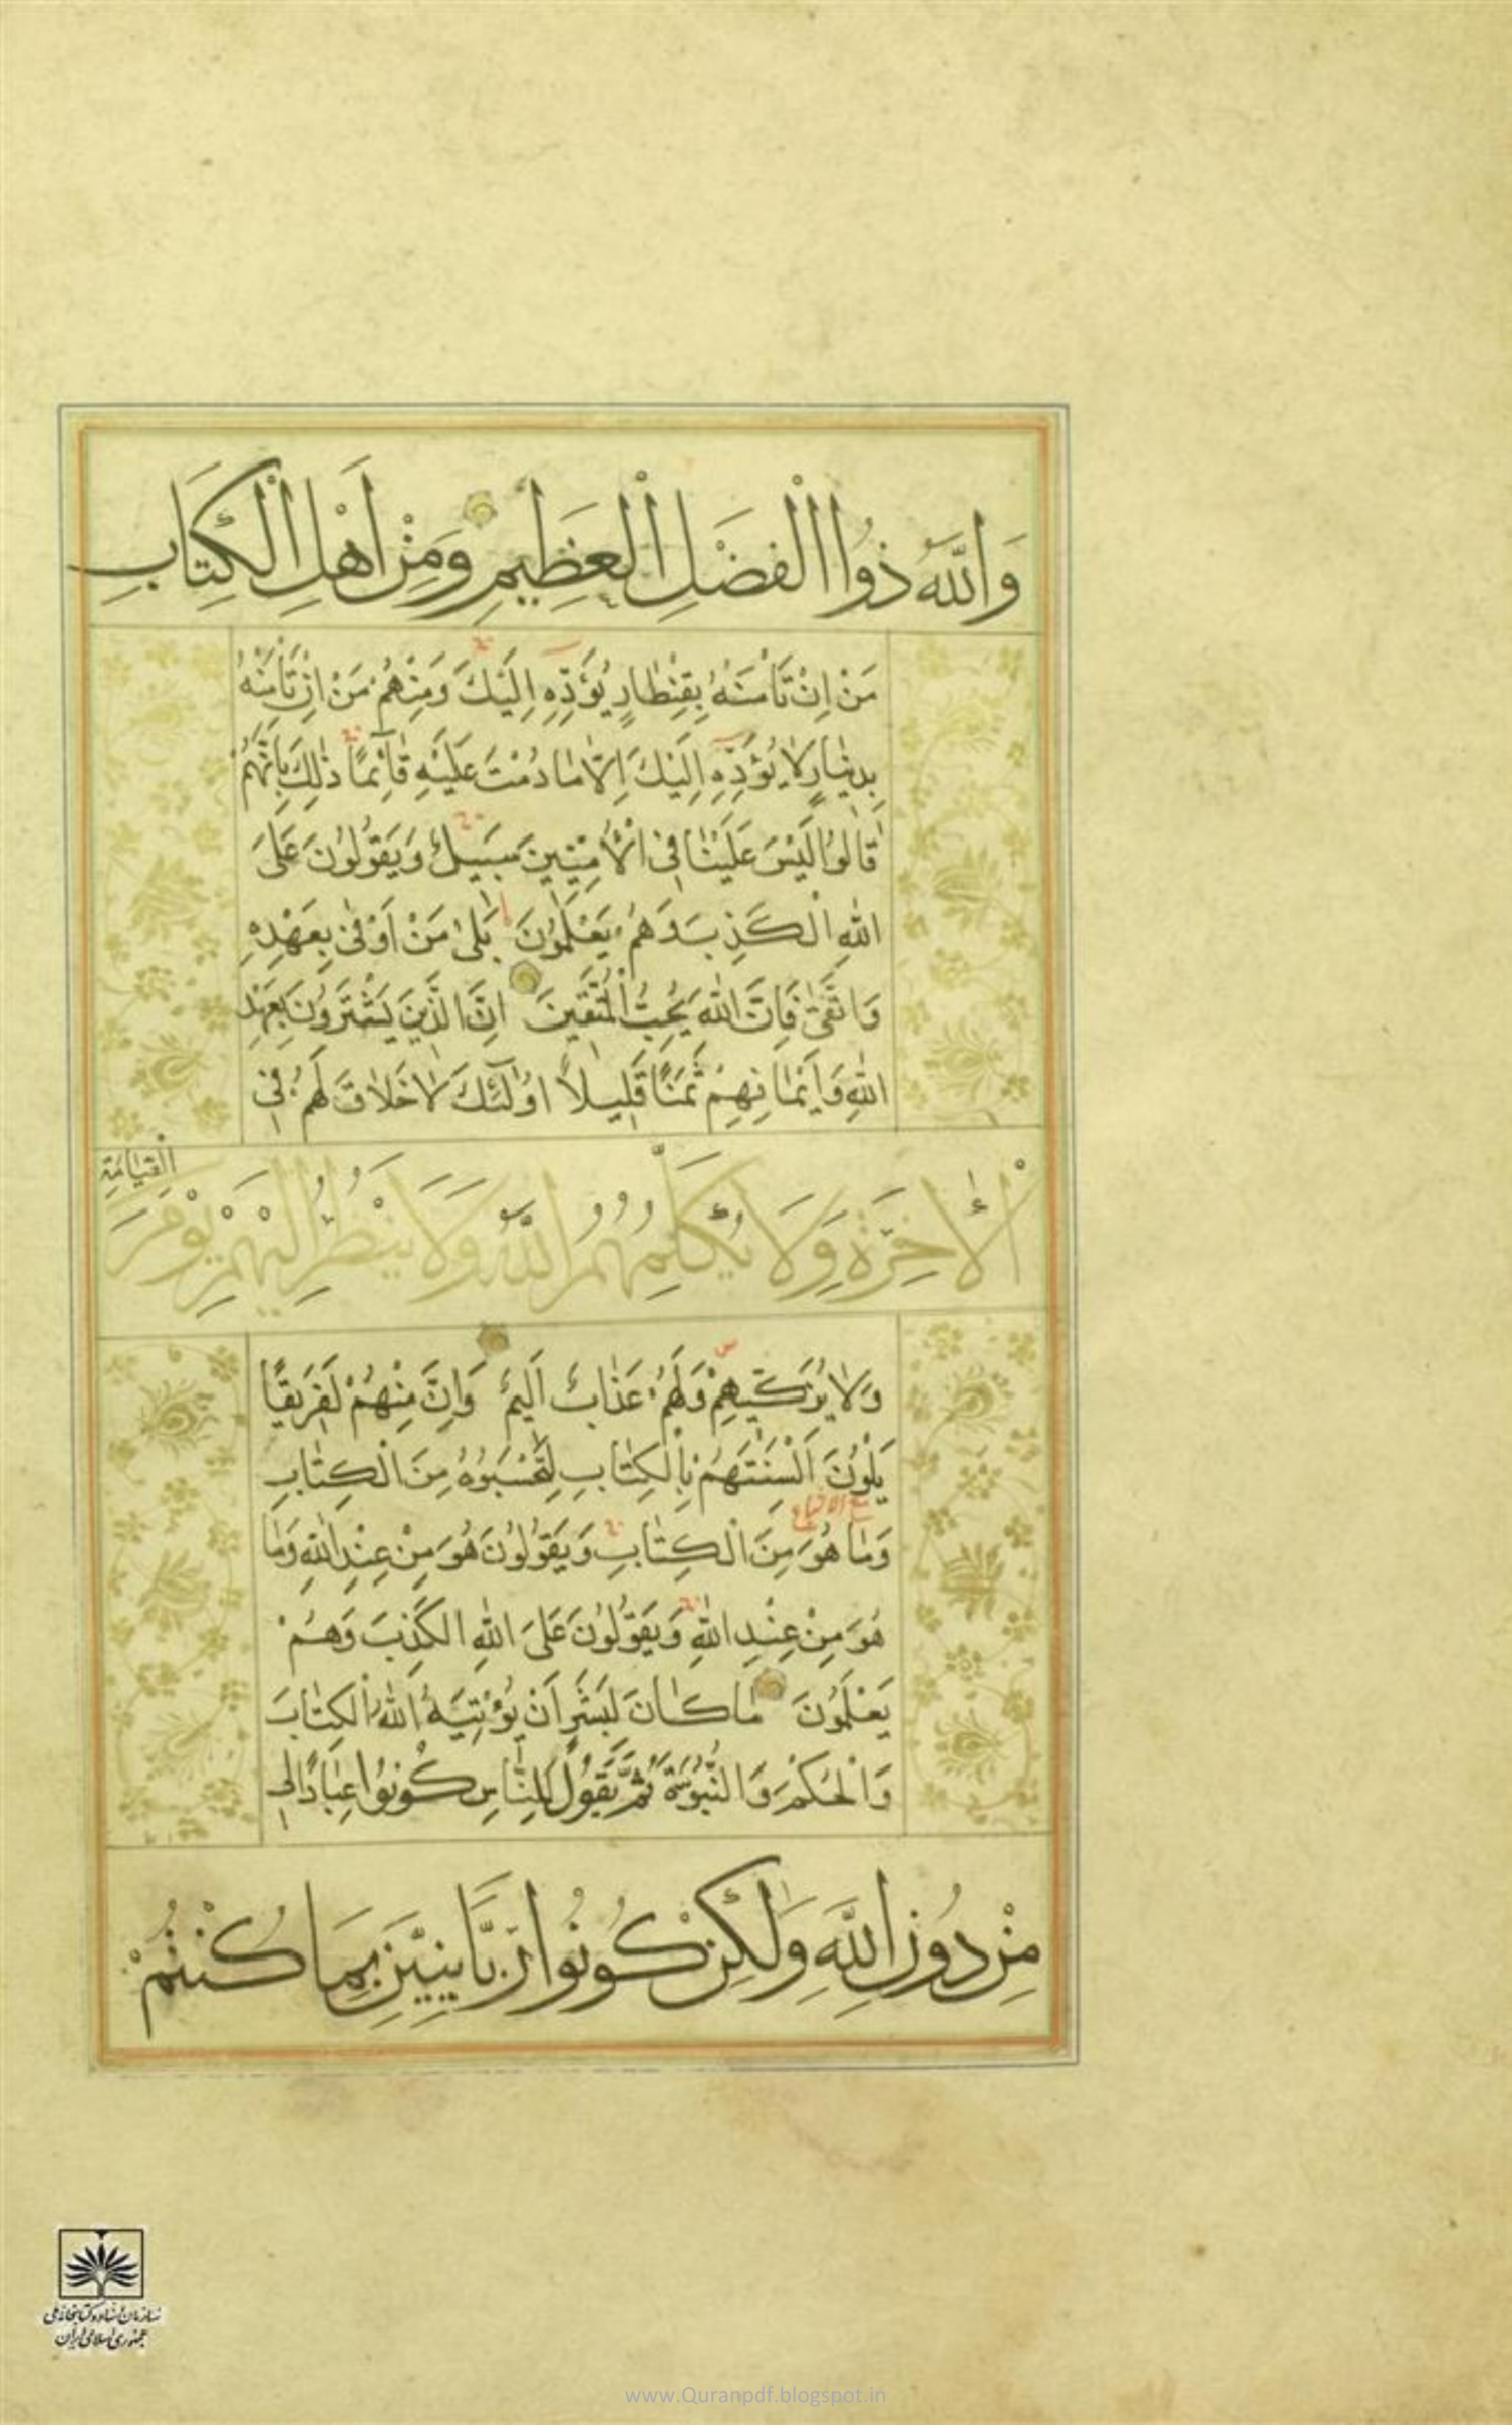 وَاللَّهُ ذُوا الْفَضْلِ الْعَظِيمِ وَمِنْ اَهْلِ الْكِتَابِ
مَنْ اِنْ تَأْمَنْهُ بِقِنْطَارٍ يُؤَدِّهِ اِلَيْكَ وَمِنْهُمْ مَنْ اِنْ تَأْمَنْهُ
بِدِينَارٍ لَا يُؤَدِّهِ اِلَيْكَ اِلَّا مَا دُمْتَ عَلَيْهِ قَآئِمًا ذٰلِكَ بِاَنَّهُمْ
قَالُوا لَيْسَ عَلَيْنَا فِي الْاُمِّيِّينَ سَبِيلٌ وَيَقُولُونَ عَلَى
اللّٰهِ الْكَذِبَ وَهُمْ يَعْلَمُونَ بَلٰى مَنْ اَوْفٰى بِعَهْدِهِ
وَاتَّقٰى فَاِنَّ اللّٰهَ يُحِبُّ الْمُتَّقِينَ اِنَّ الَّذِينَ يَشْتَرُونَ بِعَهْدِ
اللّٰهِ وَاَيْمَانِهِمْ ثَمَنًا قَلِيلًا اُولٰٓئِكَ لَا خَلَاقَ لَهُمْ فِي
الْاٰخِرَةِ وَلَا يُكَلِّمُهُمُ اللَّهُ وَلَا يَنْظُرُ اِلَيْهِمْ يَوْمَ
الْقِيَامَةِ
وَلَا يُزَكِّيهِمْ وَلَهُمْ عَذَابٌ اَلِيمٌ وَاِنَّ مِنْهُمْ لَفَرِيقًا
يَلْوُنَ اَلْسِنَتَهُمْ بِالْكِتَابِ لِتَحْسَبُوهُ مِنَ الْكِتَابِ
وَمَا هُوَ مِنَ الْكِتَابِ وَيَقُولُونَ هُوَ مِنْ عِنْدِ اللّٰهِ وَمَا
هُوَ مِنْ عِنْدِ اللّٰهِ وَيَقُولُونَ عَلَى اللّٰهِ الْكَذِبَ وَهُمْ
يَعْلَمُونَ مَا كَانَ لِبَشَرٍ اَنْ يُؤْتِيَهُ اللّٰهُ الْكِتَابَ
وَالْحُكْمَ وَالنُّبُوَّةَ ثُمَّ يَقُولَ لِلنَّاسِ كُونُوا عِبَادًا لِي
مِنْ دُونِ اللَّهِ وَلٰكِنْ كُونُوا رَبَّانِيِّينَ بِمَا كُنْتُمْ
سازمان اسناد و کتابخانه ملی
جمهوری اسلامی ایران
www.Quranpdf.blogspot.in